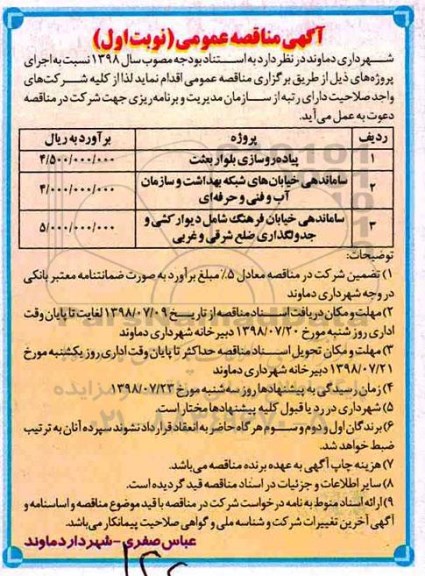 آگهی مناقصه عمومی (نوبت اول)
شهرداری دماوند در نظر دارد به استناد بودجه مصوب سال ۱۳۹۸ نسبت به اجرای
پروژه‌های ذیل از طریق برگزاری مناقصه عمومی اقدام نماید لذا از کلیه شرکت‌های
واجد صلاحیت دارای رتبه از سازمان مدیریت و برنامه‌ریزی جهت شرکت در مناقصه
دعوت به عمل می‌آید.
ردیف پروژه برآورد به ریال
۱ پیاده‌روسازی بلوار بعثت ۴/۵۰۰/۰۰۰/۰۰۰
۲ ساماندهی خیابان‌های شبکه بهداشت و سازمان
آب و فنی و حرفه‌ای ۴/۰۰۰/۰۰۰/۰۰۰
۳ ساماندهی خیابان فرهنگ شامل دیوارکشی و
جدولگذاری ضلع شرقی و غربی ۵/۰۰۰/۰۰۰/۰۰۰
توضیحات:
۱) تضمین شرکت در مناقصه معادل ۵٪ مبلغ برآورد به صورت ضمانتنامه معتبر بانکی
در وجه شهرداری دماوند
۲) مهلت و مکان دریافت اسناد مناقصه از تاریخ ۱۳۹۸/۰۷/۰۹ لغایت تا پایان وقت
اداری روز شنبه مورخ ۱۳۹۸/۰۷/۲۰ دبیرخانه شهرداری دماوند
۳) مهلت و مکان تحویل اسناد مناقصه حداکثر تا پایان وقت اداری روز یکشنبه مورخ
۱۳۹۸/۰۷/۲۱ دبیرخانه شهرداری دماوند
۴) زمان رسیدگی به پیشنهادها روز سه‌شنبه مورخ ۱۳۹۸/۰۷/۲۳
۵) شهرداری در رد یا قبول کلیه پیشنهادها مختار است.
۶) برندگان اول و دوم و سوم هرگاه حاضر به انعقاد قرارداد نشوند سپرده آنان به ترتیب
ضبط خواهد شد.
۷) هزینه چاپ آگهی به عهده برنده مناقصه می‌باشد.
۸) سایر اطلاعات و جزئیات در اسناد مناقصه قید گردیده است.
۹) ارائه اسناد منوط به نامه درخواست شرکت در مناقصه با قید موضوع مناقصه و اساسنامه و
آگهی آخرین تغییرات شرکت و شناسه ملی و گواهی صلاحیت پیمانکار می‌باشد.
عباس صفری - شهردار دماوند